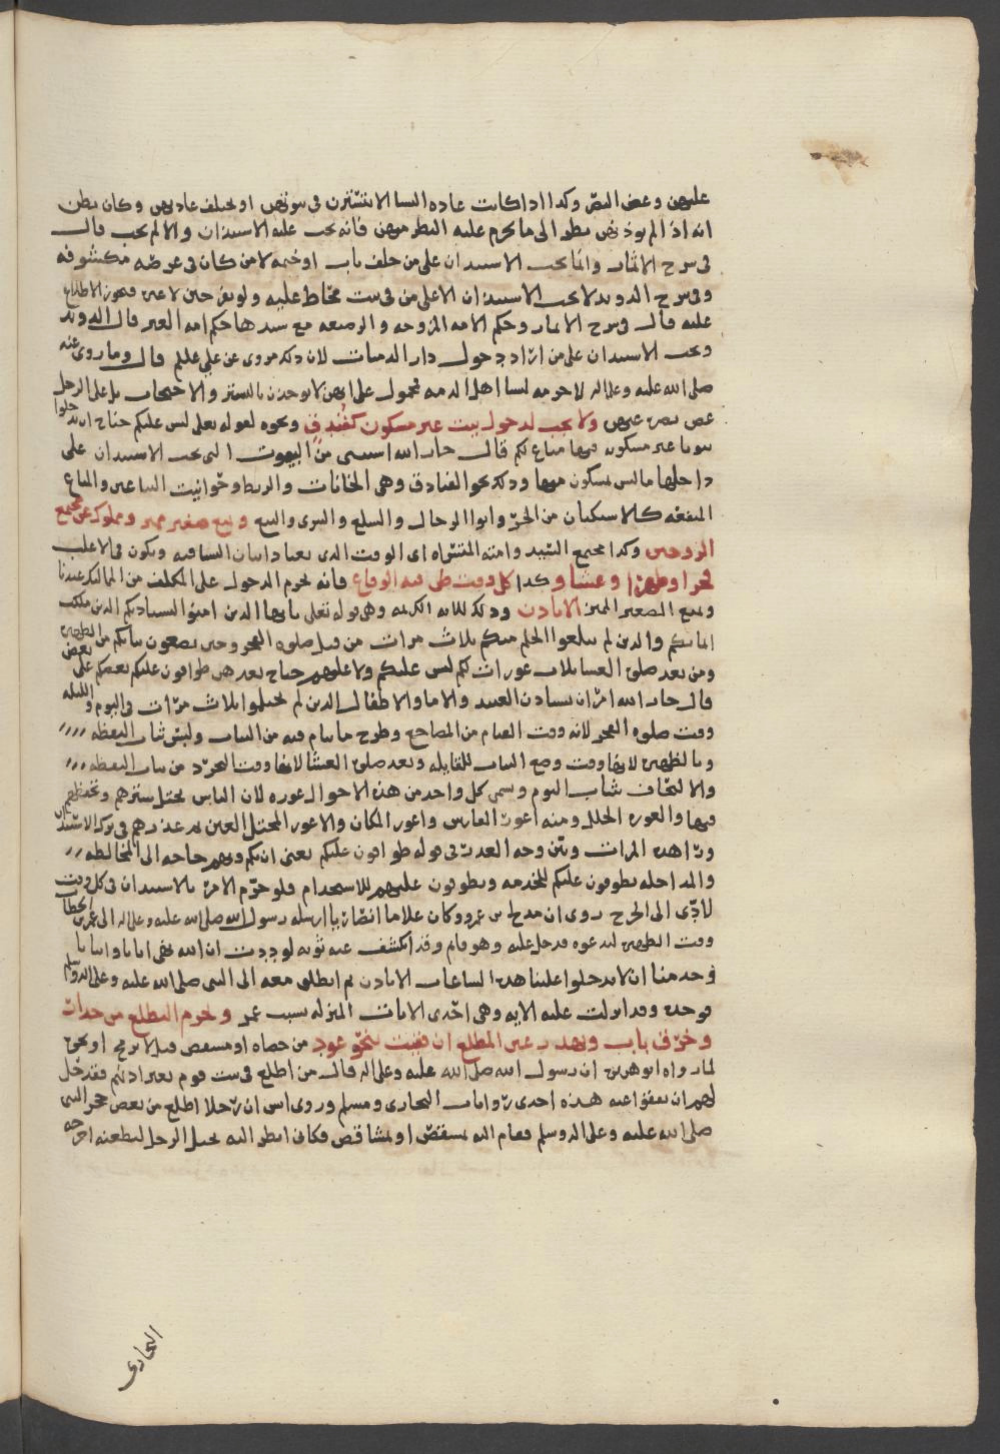 عليهن وغض البصر وكذا اذا كانت عادة النسا الا يتسترن في بيوتهن او تختلف عادتهن وكان يظن
انه اذا لم يوذنهن نظر الى ما يحرم عليه النظر منهن فانه يجب عليه الاستيذان والا لم يجب قال
في شرح الاثمار وانما يجب الاستيذان على من خلف باب او خيمة لا من كان في عرصه مكشوفه
وفي شرح الدويد لا يجب الاستيذان الا على من في بيت محاط عليه ولو بغير حين لا غير فيجوز الاطلاع
عليه قال في شرح الاثمار وحكم الامه المزوجه والرضيعه مع سيدها حكم امه الغير قال الدويد
ويجب الاستيذان على من اراد دخول دار الذميات لان ذلك مروي عن علي علم قال وما روي عنه
صلى الله عليه وعلى اله لا حرمه لنسا اهل الذمه محمول على انهن لا يوخذن بالتستر والاحتجاب بل على الرجل
غض بصره عنهن ولا يجب لدخول بيت غير مسكون كفندق ونحوه لقوله تعلى ليس عليكم جناح ان تدخلوا
بيوتا غير مسكونه فيها متاع لكم قال جار الله استثنى من البيوت التي يجب الاستيذان على
داخلها ما ليس بمسكون منها وذلك نحو الفنادق وهي الخانات والربط وحوانيت البياعين والمتاع
المنفعه كالاستكنان من الحر وايوا الرحال والسلع والشرى والبيع ويمنع صغير مميز ومملوك عن مجتمع
الزوجين وكذا مجتمع السيد وامته المتسراه اي الوقت الذي يعتاد اتيان النسا فيه ويكون في الاغلب
فجرا وظهرا وعشا وكذا كل وقت ظن فيه الوقاع فانه يحرم الدخول على المكلف من المماليك عندنا
ويمنع الصغير المميز الا باذن وذلك للايه الكريمه وهي قوله تعلى يا ايها الذين امنوا ليستاذنكم الذين ملكت
ايمانكم والذين لم يبلغوا الحلم منكم ثلاث مرات من قبل صلوه الفجر وحين تضعون ثيابكم من الظهيره
ومن بعد صلوة العشا ثلاث عورات لكم ليس عليكم ولا عليهم جناح بعدهن طوافون عليكم بعضكم على بعض
قال جار الله امر ان يستاذن العبيد والاما والاطفال الذين لم يحتلموا ثلاث مرات في اليوم والليله
وقت صلوه الفجر لانه وقت القيام من المضاجع وطرح ما ينام فيه من الثياب ولبس ثياب اليقظه
وبالظهيره لانها وقت وضع الثياب للقايله وبعد صلوة العشا لانها وقت التجرد من ثياب اليقظه
والالتحاف بثياب النوم وسمى كل واحد من هذه الاحوال عوره لان الناس يختل سترهم وتحفظهم
فيها والعوره الخلل ومنه اعور الفارس واعور المكان والاعور المختل العين ثم عذرهم في ترك الاستيذان
ورا هذه المرات وبين وجه العذر في قوله طوافون عليكم يعني ان بكم وبهم حاجه الى المخالطه
والمداخله يطوفون عليكم للخدمه وتطوفون عليهم للاستخدام فلو جزم الامر بالاستيذان في كل وقت
لادى الى الحرج روي ان مدلج بن عمرو وكان غلاما انصاريا ارسله رسول الله صلى الله عليه وعلى اله الى عمر بن الخطاب
وقت الظهيره ليدعوه فدخل عليه وهو نايم وقد انكشف عنه ثوبه لوددت ان الله نهى اباءنا وابناءنا
وخدمنا ان لا يدخلوا علينا هذه الساعات الا باذن ثم انطلق معه الى النبي صلى الله عليه وعلى اله وسلم
فوجده وقد انزلت عليه الايه وهي احدى الايات المنزله بسبب عمر ويحرم التطلع من جدرات
وخرق باب ويهدر عين المطلع ان فقيت بنحو عود من حصاه او مشقص قبلا برمح او نحوه
لما رواه ابو هريره ان رسول الله صلى الله عليه وعلى اله قال من اطلع في بيت قوم بغير اذنهم فقد حل
لهم ان يفقوا عينه هذه احدى روايات البخاري ومسلم وروى انس ان رجلا اطلع من بعض حجر النبي
صلى الله عليه وعلى اله وسلم فقام اليه بمشقص او بمشاقص فكاني انظر اليه يختل الرجل ليطعنه اخرجه
البخاري